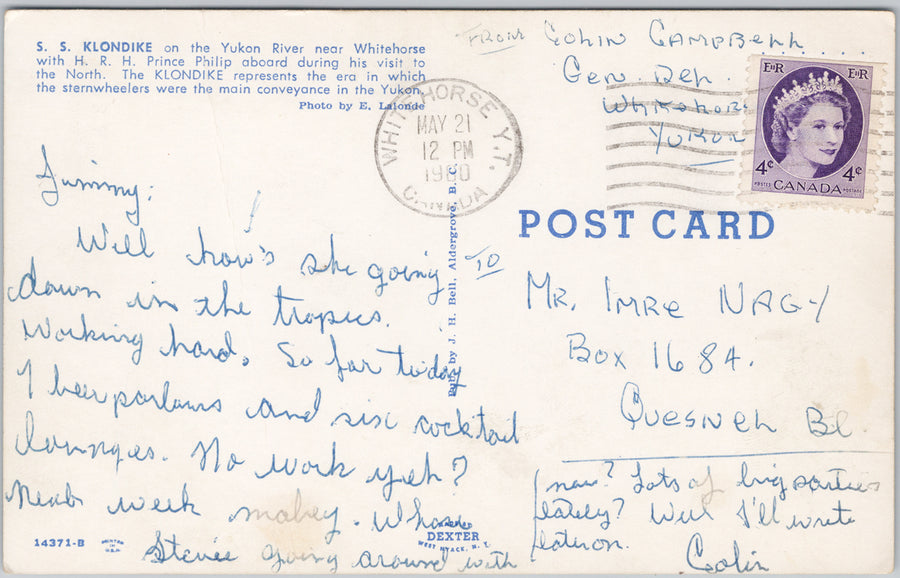 S. S. KLONDIKE on the Yukon River near Whitehorse
with H. R. H. Prince Philip aboard during his visit to
the North. The KLONDIKE represents the era in which
the sternwheelers were the main conveyance in the Yukon.
Photo by E. Lalonde
FROM Colin Campbell
Gen. Del.
Whitehorse
Yukon
WHITEHORSE Y.T.
MAY 21
12 PM
1960
CANADA
EIIR EIIR
4¢ 4¢
POSTES CANADA POSTAGE
POST CARD
Jimmy:
Well how's she going
down in the tropics.
Working hard. So far today
1 beerparlours and six cocktail
lounges. No work yeh?
week mabey. Whos
Stevie going around with
now? Lots of big parties
lately? Well I'll write
later on.
Colin
TO
Mr. Imre Nagy
Box 1684.
Quesnel BC.
Publ. by J. H. Bell, Aldergrove, B. C.
14371-B
DEXTER
WEST NYACK, N. Y.